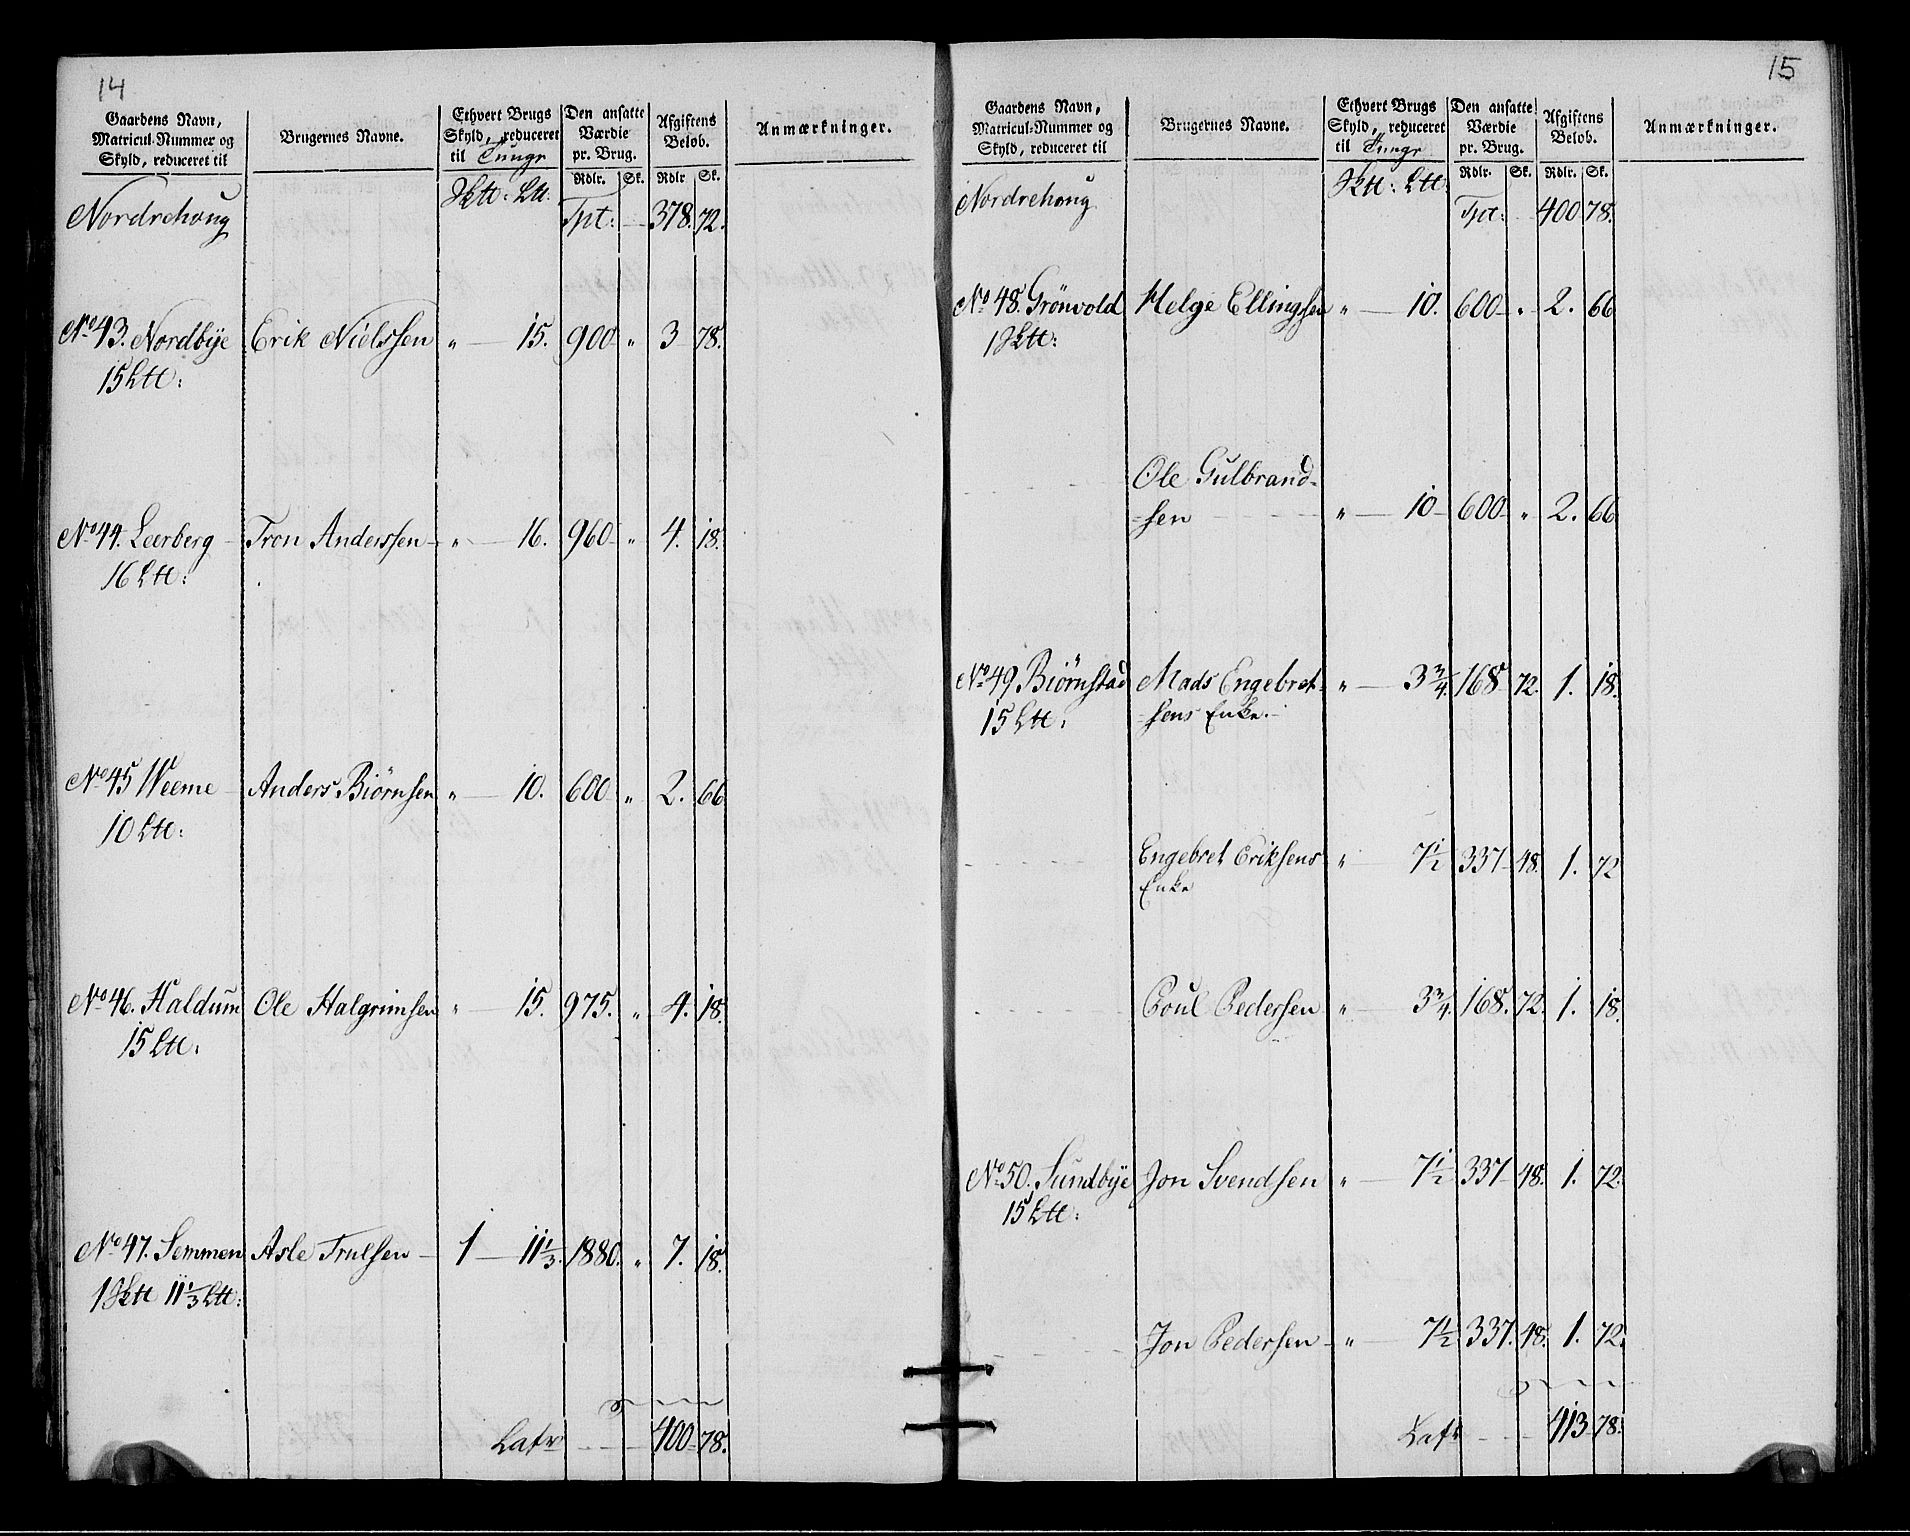 14
Gaardens Navn, Matricul-Nummer og Skyld, reduceret til
Brugernes Navne.
Ethvert Brugs Skyld, reduceret til Tunge
Den ansatte Værdie pr. Brug.
Afgiftens Beløb.
Anmærkninger.
Rdlr. Sk. Rdlr Sk.
Nordrehoug Sktt: Ltt: Tpt: 378. 72.
No 43. Nordbÿe Erik Nielssen " 15. 900 " 3 78.
15 Ltt:
No 44. Leerberg Tron Anderssen " 16. 960 " 4. 18.
16 Ltt:
No 45 Weeme Anders Biørnsen " 10. 600 " 2. 66
10 Ltt:
No 46. Haldum Ole Halgrimsen " 15. 975. " 4. 18.
15 Ltt:
No 47. Semmen Asle Trulsen 1 11 1/3. 1880. " 7. 18.
1 Sktt 11 1/3 Ltt:
Latr 400 78.
15
Gaardens Navn, Matricul-Nummer og Skyld, reduceret til
Brugernes Navne.
Ethvert Brugs Skyld, reduceret til Tunge
Den ansatte Værdie pr. Brug.
Afgiftens Beløb.
Anmærkninger.
Rdlr. Sk. Rdlr. Sk.
Nordrehoug Sktt: Ltt: Tpt: 400 78.
No 48. Grönvold Helge Ellingsen " 10. 600 " 2. 66
1 Sktt:
Ole Gulbrand-
-sen " 10 600 " 2. 66
No 49 Biörnstad Mads Engebret- " 3 3/4. 168 72. 1. 18.
15 Ltt: -sens Enke.
Engebret Eriksens " 7 1/2 337 48. 1. 72
Enke
Poul Pedersen " 3 3/4. 168. 72. 1. 18.
No 50. Sundbÿe Jon Svendsen " 7 1/2 337 48. 1. 72.
15 Ltt:
Jon Pedersen " 7 1/2 337. 48. 1. 72.
Latr 413 78.